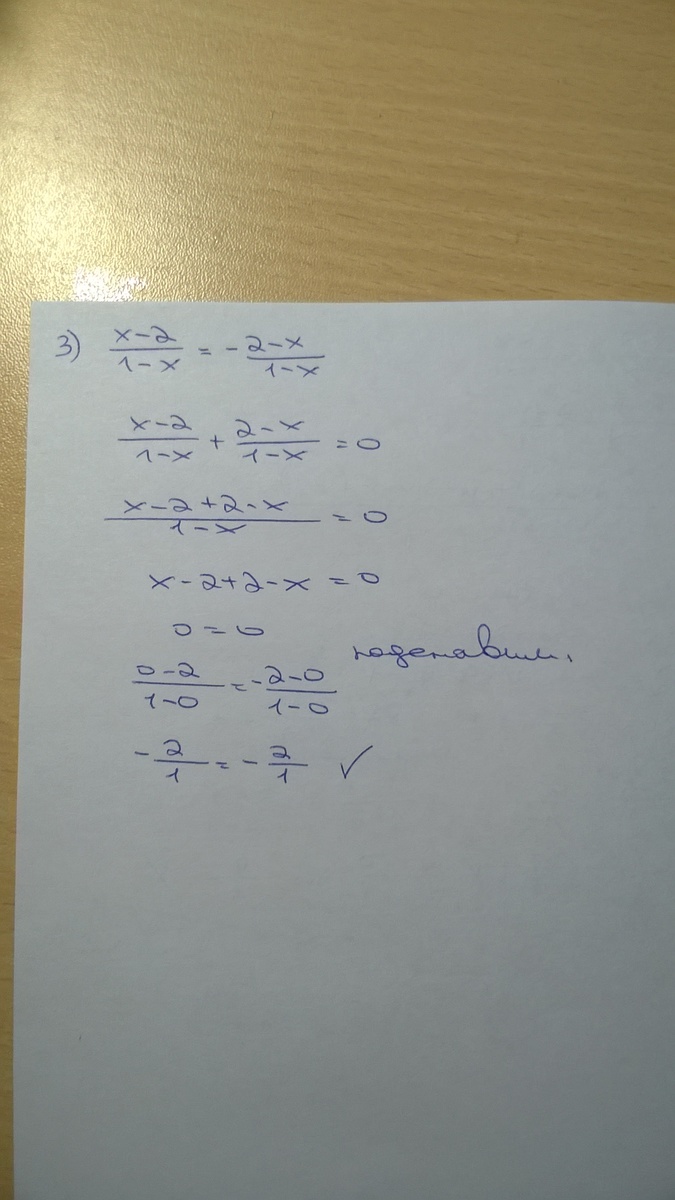 3) x-2/1-x = - 2-x/1-x
x-2/1-x + 2-x/1-x = 0
x-2+2-x/1-x = 0
x-2+2-x = 0
0 = 0
подставим.
0-2/1-0 = - 2-0/1-0
- 2/1 = - 2/1 ✓